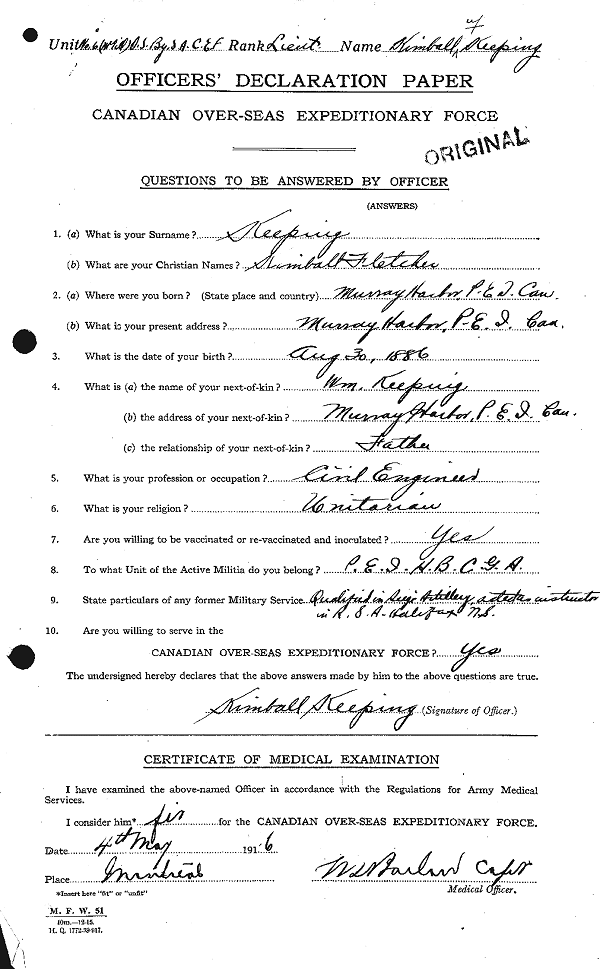 Unit No. 6 (McG.) O.S. By. S.A. C.E.F. Rank Lieut. Name Kimball F. Keeping
OFFICERS' DECLARATION PAPER
CANADIAN OVER-SEAS EXPEDITIONARY FORCE
ORIGINAL
QUESTIONS TO BE ANSWERED BY OFFICER
(ANSWERS)
1. (a) What is your Surname? Keeping
(b) What are your Christian Names? Kimball Fletcher
2. (a) Where were you born? (State place and country) Murray Harbor, P.E.I. Can.
(b) What is your present address? Murray Harbor, P.E.I. Can.
3. What is the date of your birth? Aug 30, 1886
4. What is (a) the name of your next-of-kin? Wm. Keeping
(b) the address of your next-of-kin? Murray Harbor, P.E.I. Can.
(c) the relationship of your next-of-kin? Father
5. What is your profession or occupation? Civil Engineer
6. What is your religion? Unitarian
7. Are you willing to be vaccinated or re-vaccinated and inoculated? Yes
8. To what Unit of the Active Militia do you belong? P.E.I. H.B. C.G.A.
9. State particulars of any former Military Service Qualified in Siege Artillery, acted as instructor
in R.S.A. Halifax N.S.
10. Are you willing to serve in the
CANADIAN OVER-SEAS EXPEDITIONARY FORCE? Yes
The undersigned hereby declares that the above answers made by him to the above questions are true.
Kimball Keeping (Signature of Officer.)
CERTIFICATE OF MEDICAL EXAMINATION
I have examined the above-named Officer in accordance with the Regulations for Army Medical
Services.
I consider him* fit for the CANADIAN OVER-SEAS EXPEDITIONARY FORCE.
Date 4th May 1916
Place Montreal Capt
Medical Officer.
*Insert here "fit" or "unfit"
M. F. W. 51
10m.—12-15.
H. Q. 1772-39-917.